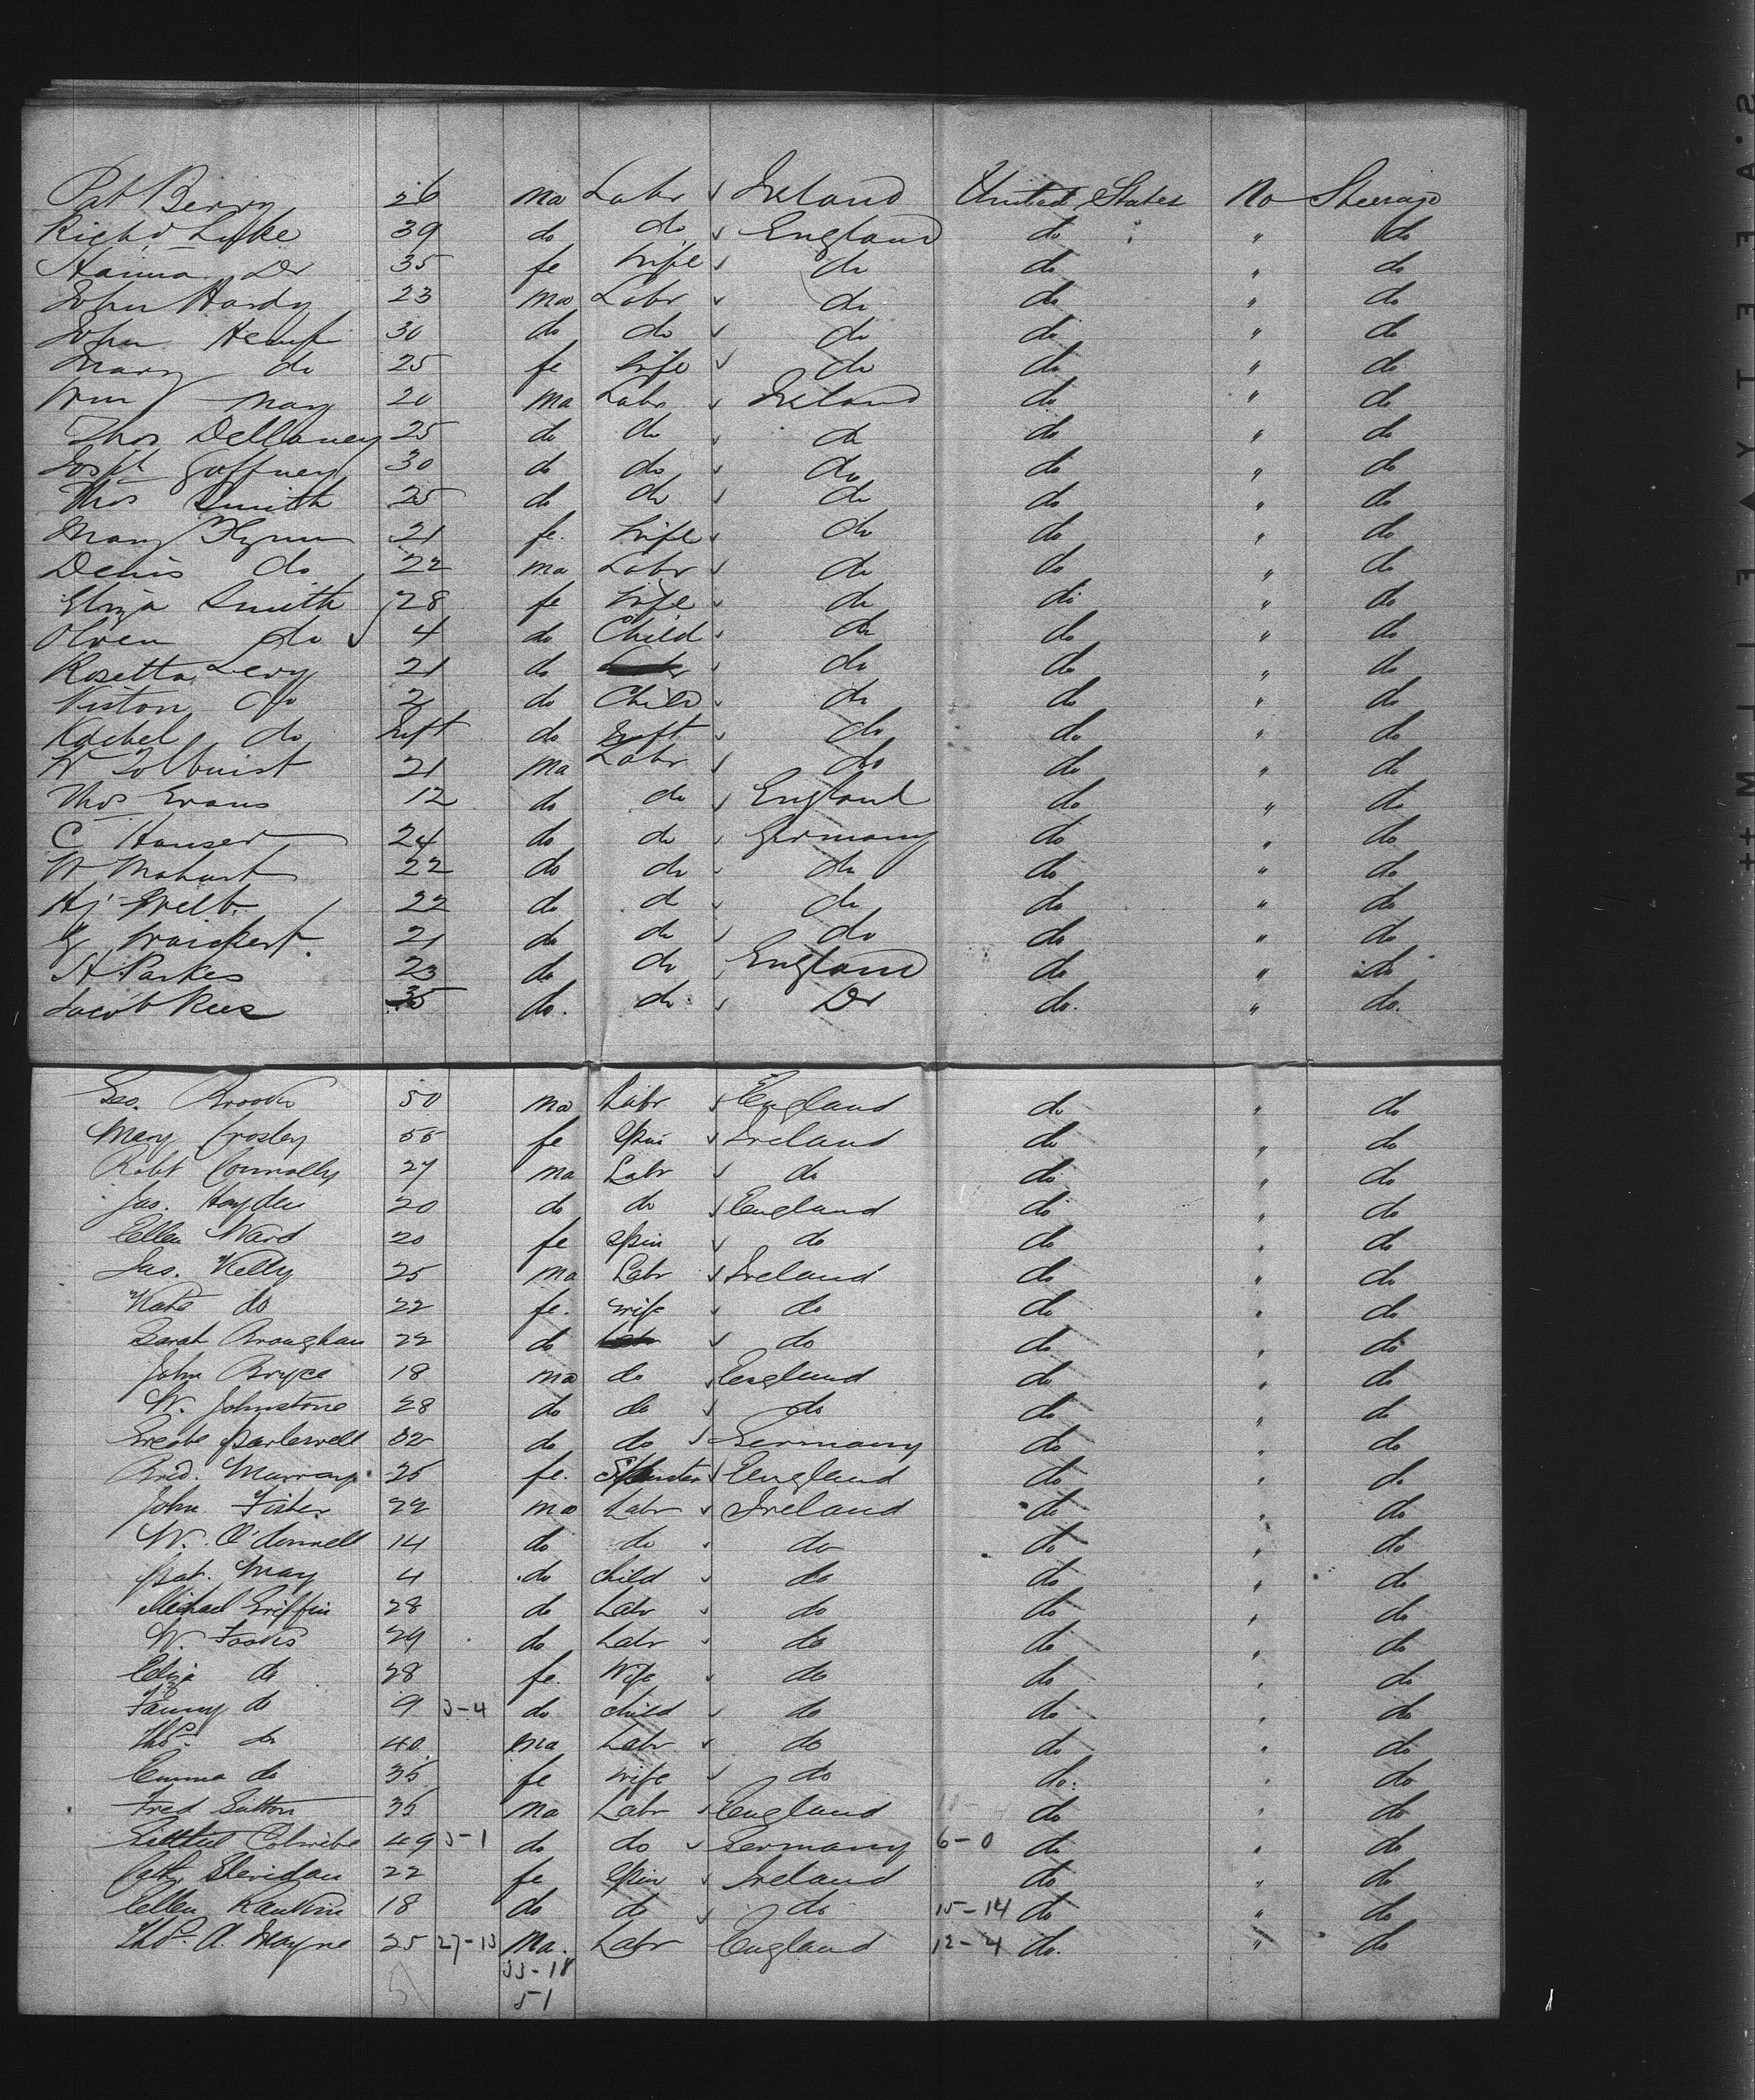 Pat Berry 26 ma Labr Ireland United States No Steerage
Richd Lyke 39 do do England do " do
Hanna Do 35 fe Wife do do " do
John Hardy 23 ma Labr do do " do
John 30 do do do do " do
Mary do 25 fe Wife do do " do
Wm May 20 ma Labr Ireland do " do
Thos Dellaney 25 do do do do " do
Josph Gaffney 30 do do do do " do
Thos Smith 25 do do do do " do
Mary Flynn 21 fe. Wife do do " do
Denis do 22 ma Labr do do " do
Eliza Smith 28 fe Wife do do " do
Owen do 4 do Child do do " do
Rosetta Levy 21 do do do " do
do 2 do Child do do " do
Rachel do Inft do Inft do do " do
W 21 ma Labr do do " do
Thos Evans 12 do do England do " do
C Hauser 24 do do Germany do " do
W 22 do do do do " do
22 do do do do " do
21 do do do do " do
H Parkes 23 do do England do " do
Jacob Rees 35 do. do. Do do. " do.
Geo. Brooks 50 ma Labr England do " do
Mary Crosley 55 fe Spin Ireland do " do
Robt Connolly 27 ma Labr do do " do
Jas. Hayden 20 do do England do " do
Ellen Ward 20 fe Spin do do " do
Jas. Kelly 25 ma Labr Ireland do " do
Kate do 22 fe. Wife do do " do
Sarah Broughan 22 do do do " do
John Bryce 18 ma do England do " do
W. Johnstone 28 do do do do " do
32 do do Germany do " do
Brid. Murray 25 fe. Spinster England do " do
John Fister 22 ma Labr Ireland do " do
W. O'donnell 14 do do do do " do
Pat. May 4 do child do do " do
Michael Griffin 28 do Labr do do " do
W. 29 do Labr do do " do
Eliza do 28 fe. Wife do do " do
Fanny do 9 3-4 do child do do " do
Thos. do 40 ma Labr do do " do
Emma do 35 fe wife do do " do
Fred Sutton 35 ma Labr England do " do
49 5-1 do do Germany 6-0 do " do
Cath Sheridan 22 fe Spin Ireland do " do
Ellen Rankin 18 do do do 15-14 do " do
Thos. A. Mayne 25 27-13 Ma. Labr England 12-4 do. " do
33-18
51 51